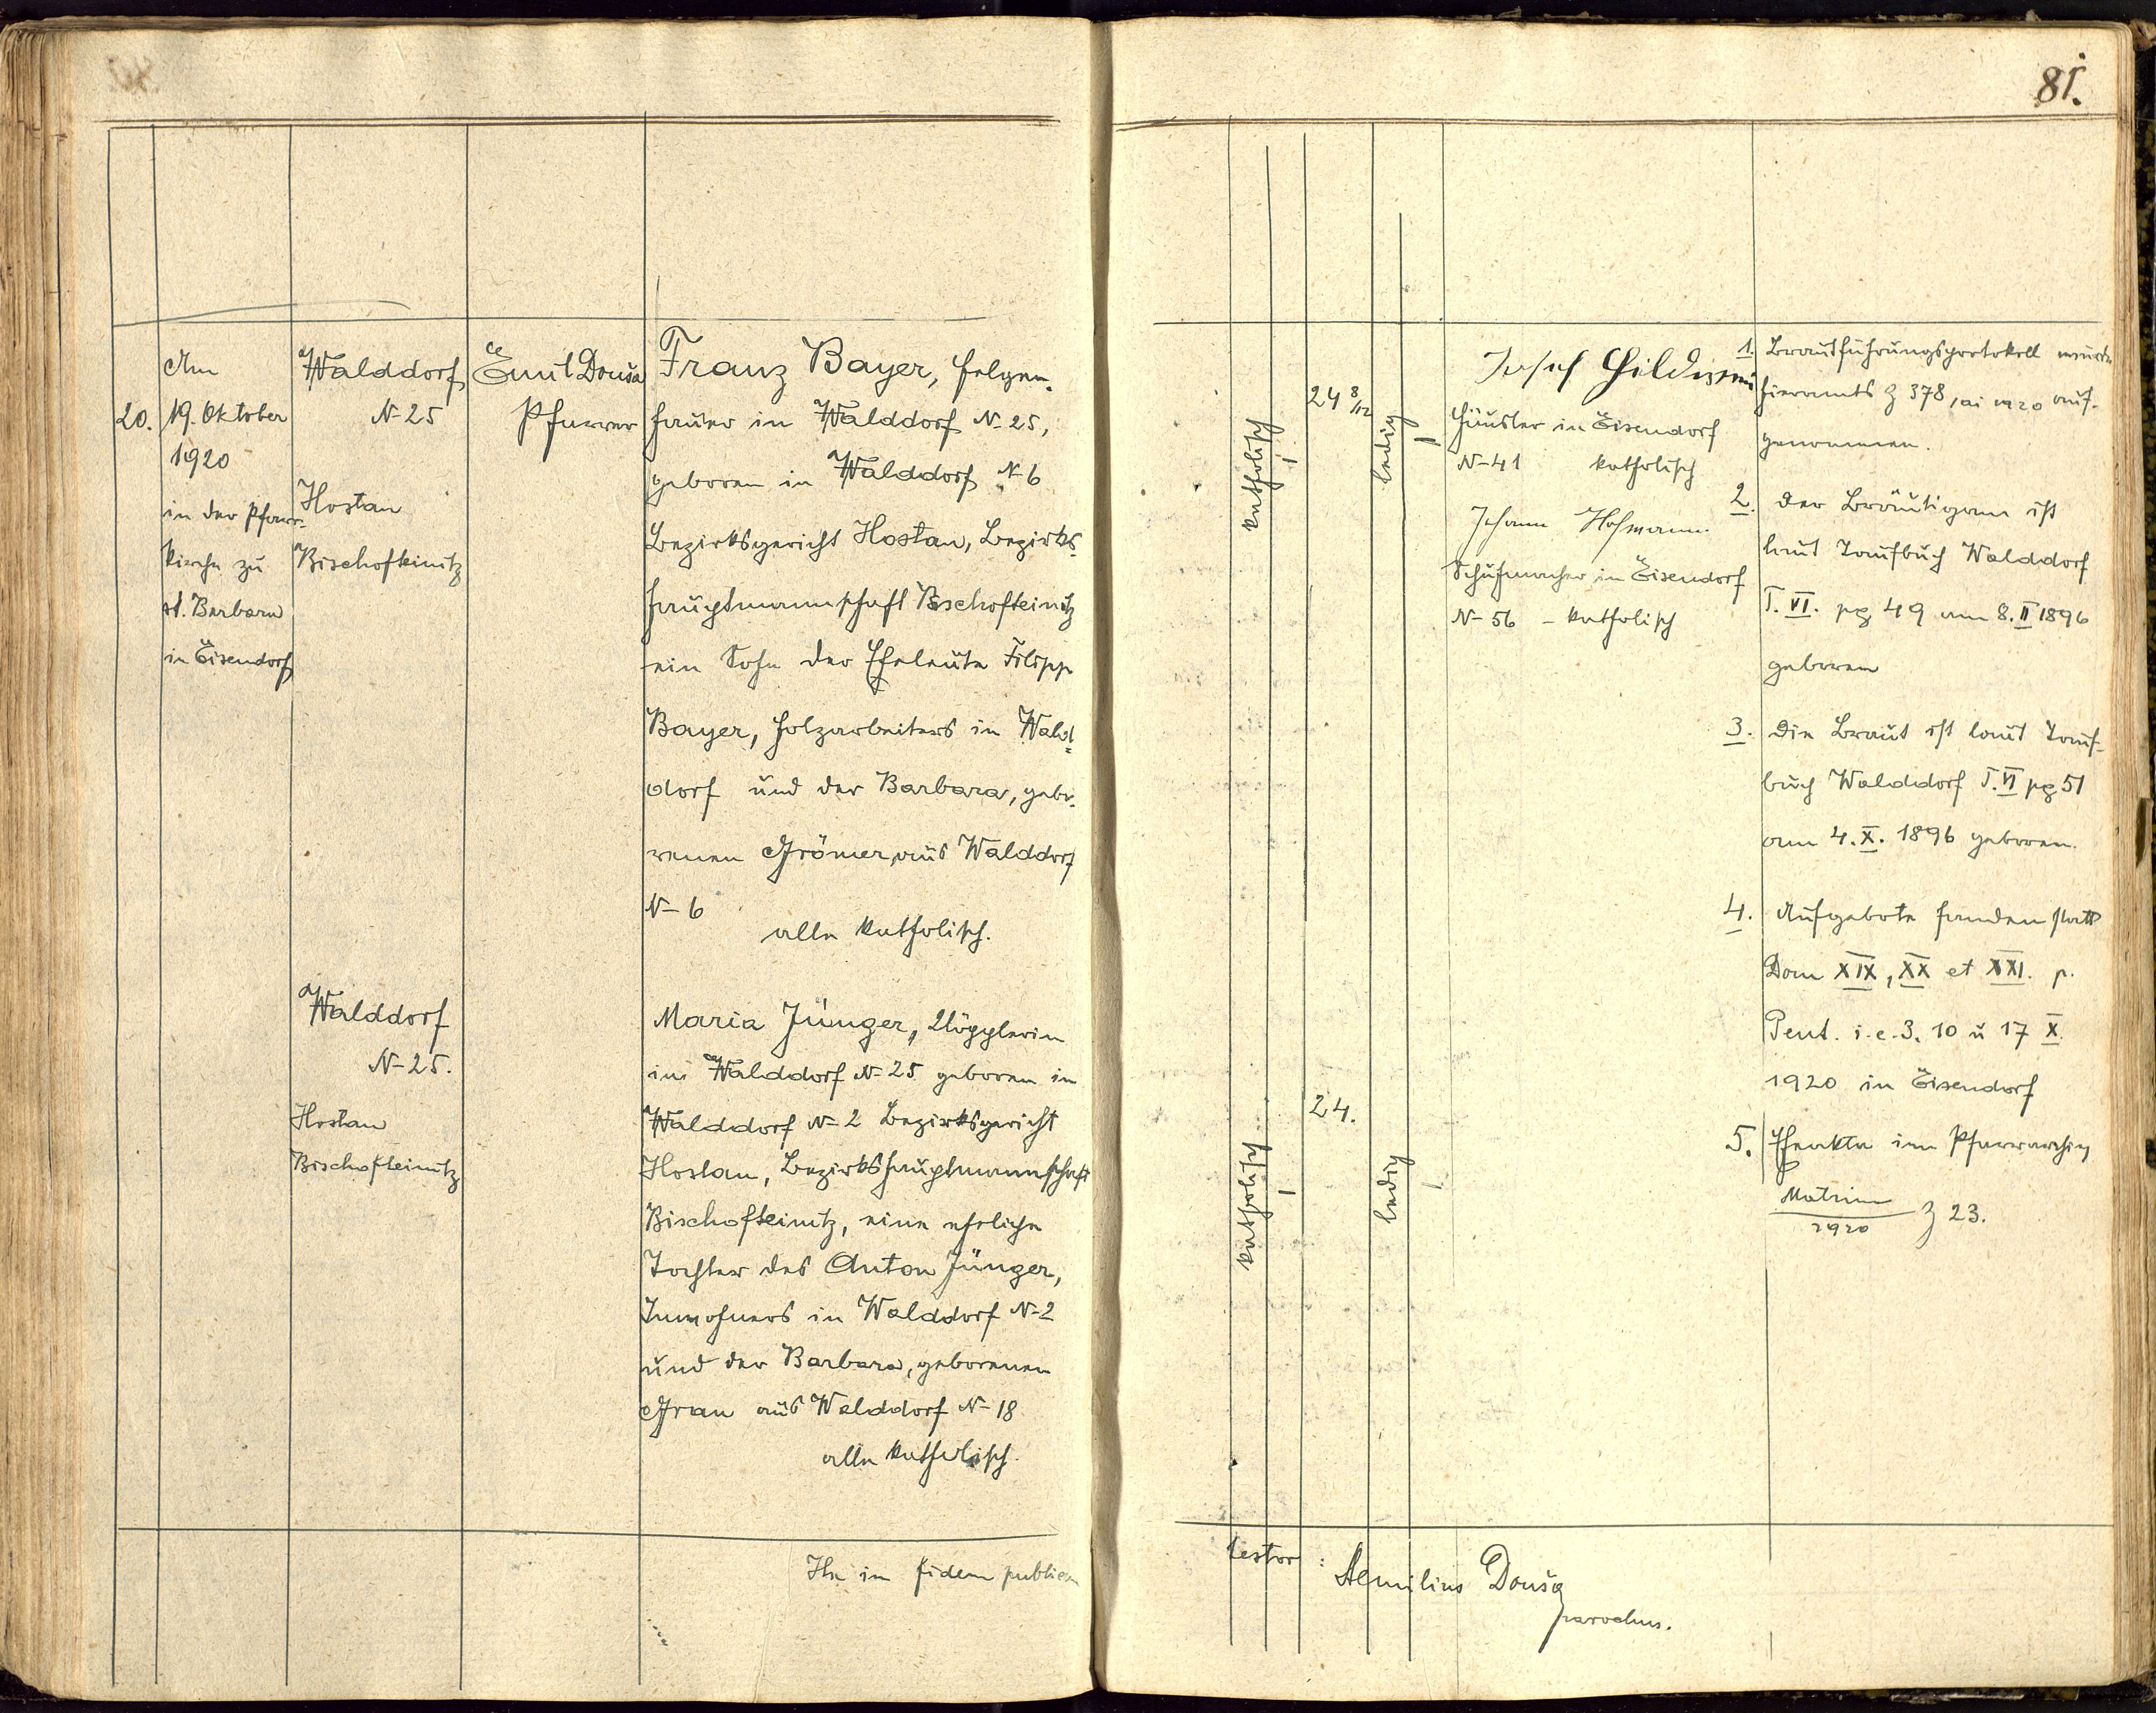 81.
20.
Am
19. Oktober
1920
in der Pfarr-
kirche zu
st. Barbara
in Eisendorf
Walddorf
N-25
Hostau
Bischofteinitz
Emil Douša
Pfarrer
Franz Bayer, Felgen-
hauer in Walddorf N-25,
geboren in Walddorf N-6
Bezirksgericht Hostau, Bezirks-
hauptmannschaft Bischofteinitz
ein Sohn der Eheleute Filipp
Bayer, Holzarbeiters in Wald-
dorf und der Barbara, gebo-
renen Grömer, aus Walddorf
N-6
alle katholisch.
Walddorf
N-25.
Hostau
Bischofteinitz
Maria Jünger, Klöpplerin
in Walddorf N-25 geboren in
Walddorf N-2 Bezirksgericht
Hostau, Bezirkshauptmannschaft
Bischofteinitz, eine eheliche
Tochter des Anton Jünger,
Inwohners in Walddorf N-2
und der Barbara, geborenen
Gran aus Walddorf N-18
alle katholisch.
katholisch
24 8/12
ledig
Josef
Häusler in Eisendorf
N-41 katholisch
Johann Hofmann
Schuhmacher in Eisendorf
N-56 - katholisch
1. Brautführungsprotokoll wurde
hieramts Z 378, ai 1920 auf-
genommen.
2. Der Bräutigam ist
laut Taufbuch Walddorf
T. VI. pg 49 am 8. II 1896
geboren
3. Die Braut ist laut Tauf-
buch Walddorf T. VI pg 51
am 4. X. 1896 geboren.
4. Aufgebote fanden statt
Dom XIX, XX et XXI. p.
Pent. i.e. 3. 10 u 17 X.
1920 in Eisendorf
5. Eheakten im Pfarrarchiv
Matrim
1920 Z 23.
katholisch
24.
ledig
Ita in fidem publicam
testor: Aemilius Douša
parochus.